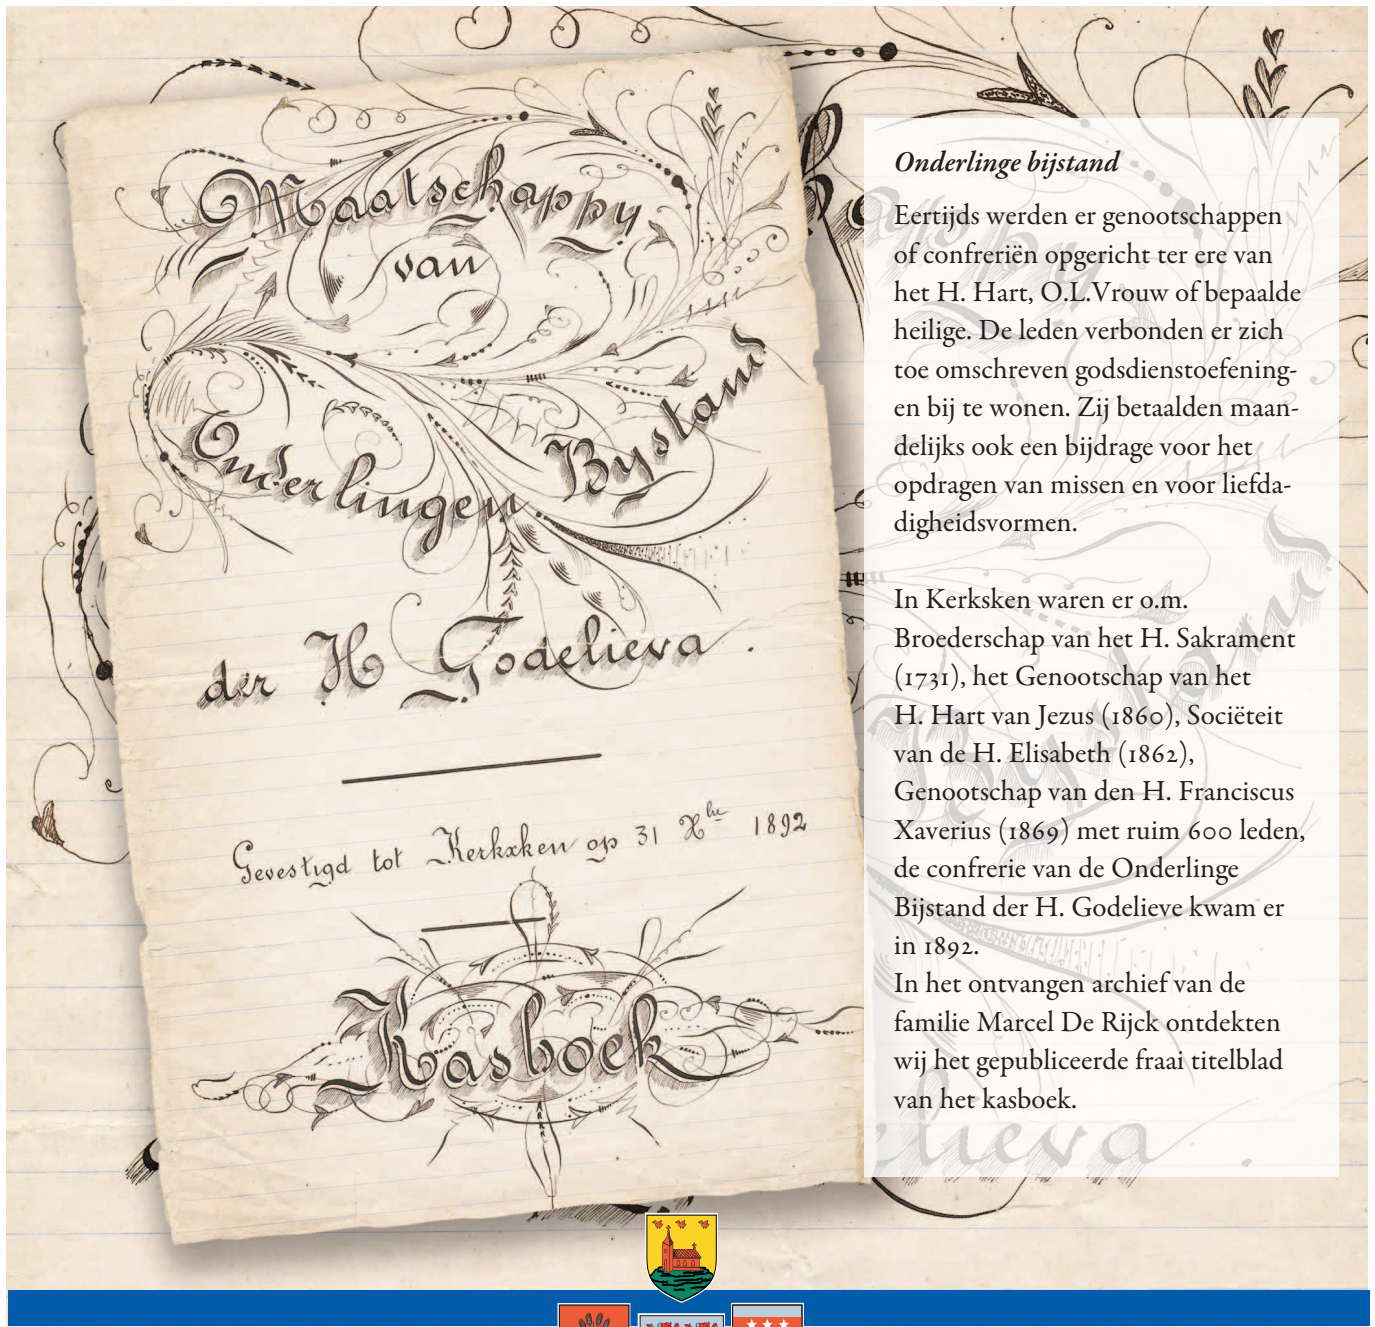 Maatschappy
van
Onderlingen Bystand
der H Godelieva.
Gevestigd tot Kerkxken op 31 Xbre 1892
Kasboek
Onderlinge bijstand
Eertijds werden er genootschappen
of confreriën opgericht ter ere van
het H. Hart, O.L.Vrouw of bepaalde
heilige. De leden verbonden er zich
toe omschreven godsdienstoefening-
en bij te wonen. Zij betaalden maan-
delijks ook een bijdrage voor het
opdragen van missen en voor liefda-
digheidsvormen.
In Kerksken waren er o.m.
Broederschap van het H. Sakrament
(1731), het Genootschap van het
H. Hart van Jezus (1860), Sociëteit
van de H. Elisabeth (1862),
Genootschap van den H. Franciscus
Xaverius (1869) met ruim 600 leden,
de confrerie van de Onderlinge
Bijstand der H. Godelieve kwam er
in 1892.
In het ontvangen archief van de
familie Marcel De Rijck ontdekten
wij het gepubliceerde fraai titelblad
van het kasboek.